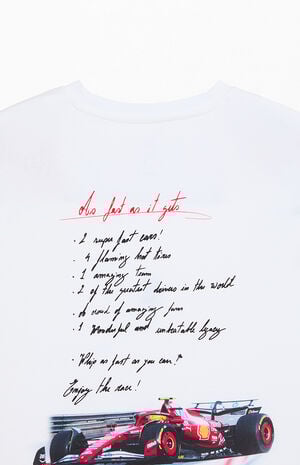 As fast as it gets
· 2 super fast cars!
· 4 flaming hot tires
· 1 amazing team
· 2 of the greatest drivers in the world
of amazing fans
· 1 Wonderful and unbeatable legacy
· Whip as fast as you can!"
Enjoy the race!